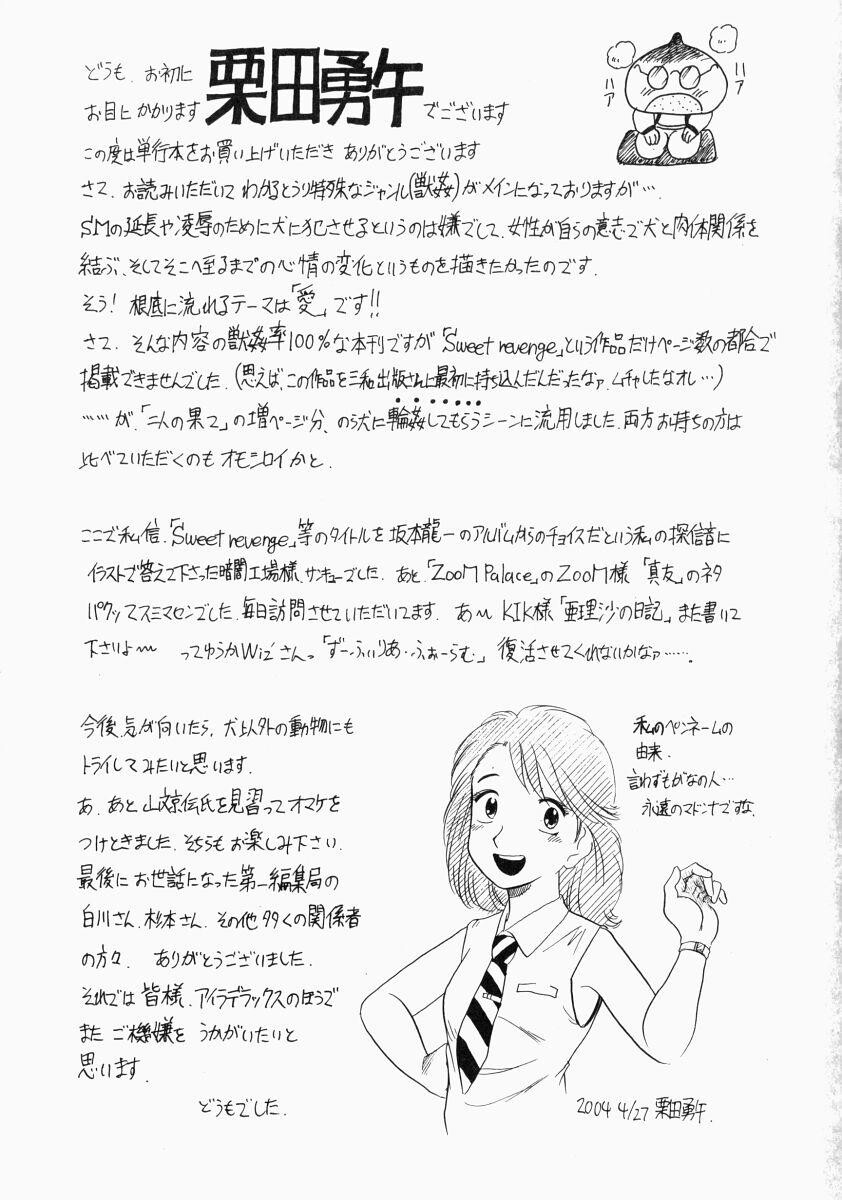 どうも、お初に
お目にかかります 栗田勇午 でございます
ハァ
ハァ
この度は単行本をお買い上げいただき ありがとうございます
さて、お読みいただいて わかるとうり特殊なジャンル(獣姦)がメインになっておりますが…、
SMの延長や凌辱のために犬に犯させるというのは嫌でして、女性が自らの意志で犬と肉体関係を
結ぶ、そしてそこへ至るまでの心情の変化というものを描きたかったのです。
そう! 根底に流れるテーマは「愛」です!!
さて、そんな内容の獣姦率100%な本刊ですが「Sweet revenge」という作品だけページ数の都合で
掲載できませんでした。(思えば、この作品を三和出版さんに最初に持ち込んだんだったなァ、ムチャしたなオレ…)
……が、「二人の果て」の増ページ分、のら犬に輪姦してもらうシーンに流用しました。両方お持ちの方は
比べていただくのもオモシロイかと、
ここで私信、「Sweet revenge」等のタイトルを坂本龍一のアルバムからのチョイスだという私の探信音に
イラストで答えて下さった暗闇工場様、サンキューでした。あと、「ZooM Palace」のZooM様 「真友」のネタ
パクッてスミマセンでした、毎日訪問させていただいてます。 あ〜 KIK様「亜理沙の日記」また書いて
下さいよ〜 ってゆうかWiz'さんっ「ずーふぃりあ・ふぉーらむ」復活させてくれないかなァ……、
今後、気が向いたら、犬以外の動物にも
トライしてみたいと思います、
あ、あと山文京伝氏を見習ってオマケを
つけときました、そちらもお楽しみ下さい、
最後にお世話になった第一編集局の
白川さん、杉本さん、その他多くの関係者
の方々、 ありがとうございました、
それでは皆様、アイラデラックスのほうで
またご機嫌をうかがいたいと
思います、
どうもでした、
私のペンネームの
由来、
言わずもがなの人…
永遠のマドンナですな、
2004 4/27 栗田勇午、